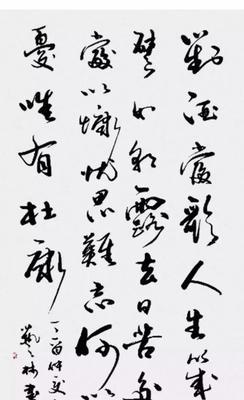 對酒當歌人生幾
譬如朝露去日苦多
當以慷忧思難忘何以
憂唯有杜康
丁酉仲夏